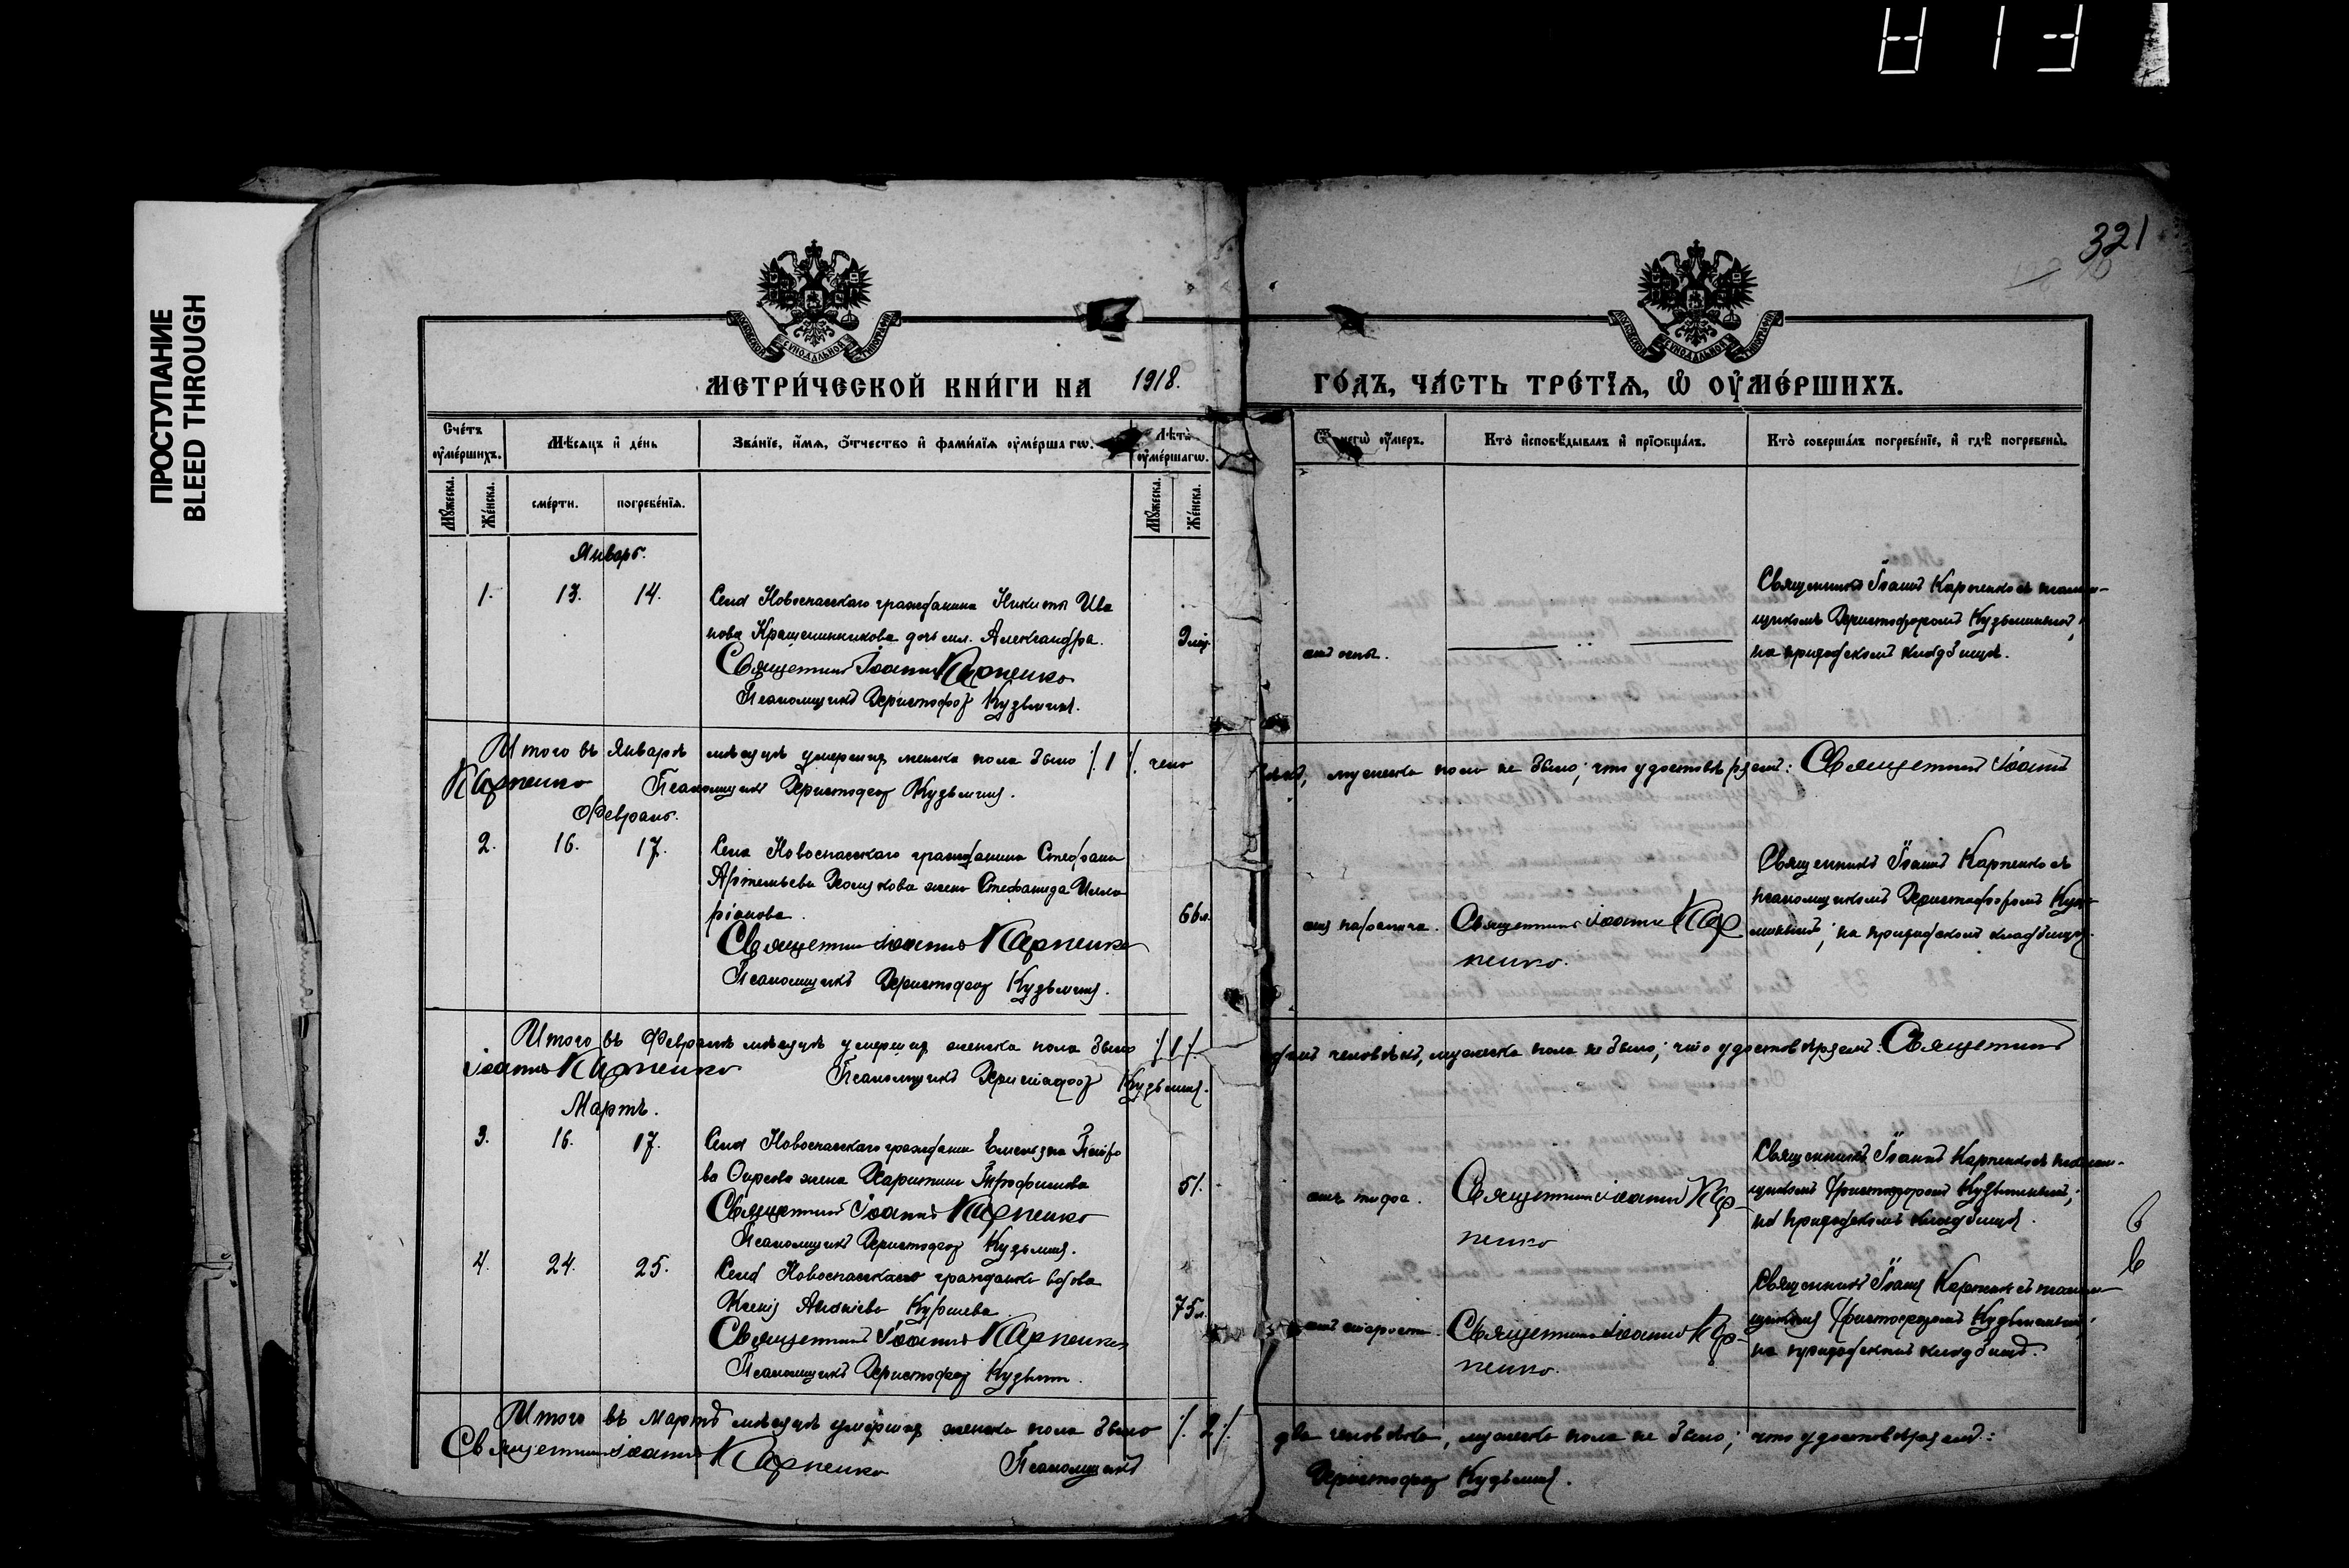 ПРОСТУПАНИЕ
BLEED THROUGH
321
МЕТРИ́ЧЕСКОЙ КНИ́ГИ НА 1918.
ГО́ДЪ, ЧА́СТЬ ТРЕ́ТЇѦ, Ѡ҆ ОУ҆МЕ́РШИХЪ.
Сче́тъ оу҆ме́ршихъ.
Мѣ́сѧцъ и҆ де́нь
Зва́нїе, и҆́мѧ, ѻ҆́тчество и҆ фами́лїѧ оу҆ме́ршагѡ.
Лѣ́та оу҆ме́ршагѡ.
Ѿ чегѡ̀ оу҆́меръ.
Кто̀ и҆сповѣ́дывалъ и҆ прїобща́лъ.
Кто̀ соверша́лъ погребе́нїе, и҆ гдѣ̀ погребены̀.
Мꙋ́жеска.
Же́нска.
сме́рти.
погребе́нїѧ.
Мꙋ́жеска.
Же́нска.
Январь.
1. 13. 14.
Села Новоспасскаго гражданина Никиты Ива
нова Крашенинникова дочь Александра.
Священникъ Іоаннъ Карпенко
Псаломщикъ Христофоръ Кузьминъ.
отъ оспы.
Священникъ Іоаннъ Карпенко съ псалом-
щикомъ Христофоромъ Кузьминымъ;
на приходскомъ кладбищѣ.
Итого въ Январѣ мѣсяцѣ умершихъ женска пола было /.1./ чело
вѣкъ, мужеска пола не было; что удостовѣряемъ: Священникъ Іоаннъ
Карпенко Псаломщикъ Христофоръ Кузьминъ.
Февраль.
2. 16. 17.
Села Новоспасскаго гражданина Стефана
Артемьева жена Стефанида Илла
ріонова.
66 л.
Священникъ Іоаннъ Карпенко
Псаломщикъ Христофоръ Кузьминъ.
Священникъ Іоаннъ Кар
пенко.
Священникъ Іоаннъ Карпенко съ
псаломщикомъ Христофоромъ Кузь-
минымъ; на приходскомъ кладбищѣ.
Итого въ Февралѣ мѣсяцѣ умершихъ женска пола было /.1./
одинъ человѣкъ, мужеска пола не было; что удостовѣряемъ: Священникъ
Іоаннъ Карпенко Псаломщикъ Христофоръ Кузьминъ.
Мартъ.
3. 16. 17.
Села Новоспасскаго гражданина Петро
ва жена Харитина Трофимова
51.
Священникъ Іоаннъ Карпенко
Псаломщикъ Христофоръ Кузьминъ.
отъ тифа.
Священникъ Іоаннъ Кар-
пенко
Священникъ Іоаннъ Карпенко съ псалом-
щикомъ Христофоромъ Кузьминымъ;
на приходскомъ кладбищѣ.
4. 24. 25.
Села Новоспасскаго гражданка вдова
Ксенія
75 л.
Священникъ Іоаннъ Карпенко
Псаломщикъ Христофоръ Кузьминъ.
отъ старости.
Священникъ Іоаннъ Кар-
пенко.
Священникъ Іоаннъ Карпенко съ псалом
щикомъ Христофоромъ Кузьминымъ;
на приходскомъ кладбищѣ.
Итого въ Мартѣ мѣсяцѣ умершихъ женска пола было /.2./
два человѣка, мужеска пола не было; что удостовѣряемъ:
Священникъ Іоаннъ Карпенко Псаломщикъ
Христофоръ Кузьминъ.